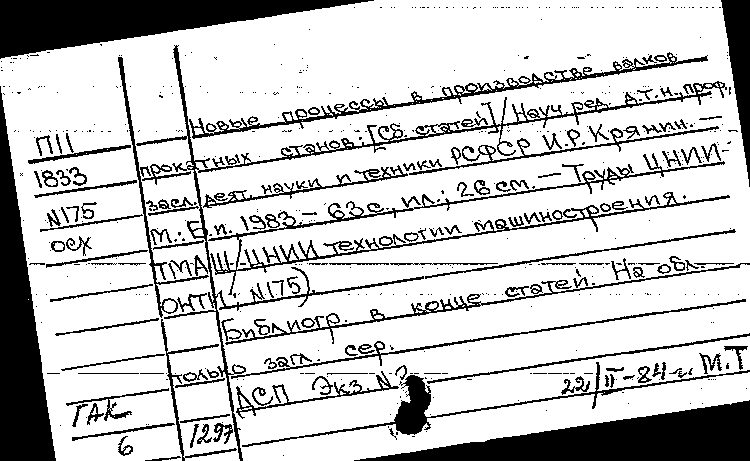 Новые процессы в производстве валков
П11 прокатных станов: [Сб. статей] / Науч. ред. д.т.н., проф.,
1833 засл. деят. науки и техники РСФСР И.Р. Крянин. —
N175 М.: Б.и. 1983. – 63 с., ил.; 26 см. — Труды ЦНИИ-
осх ТМАШ/ЦНИИ технологии машиностроения.
ОНТИ; N175).
Библиогр. в конце статей. На обл.
только загл. сер.
ДСП Экз. N
ГАК 22/II-84 г. М.Т
6 1297